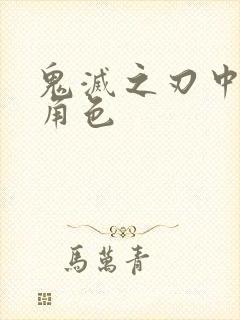 鬼滅之刃中
角色
馬萬青